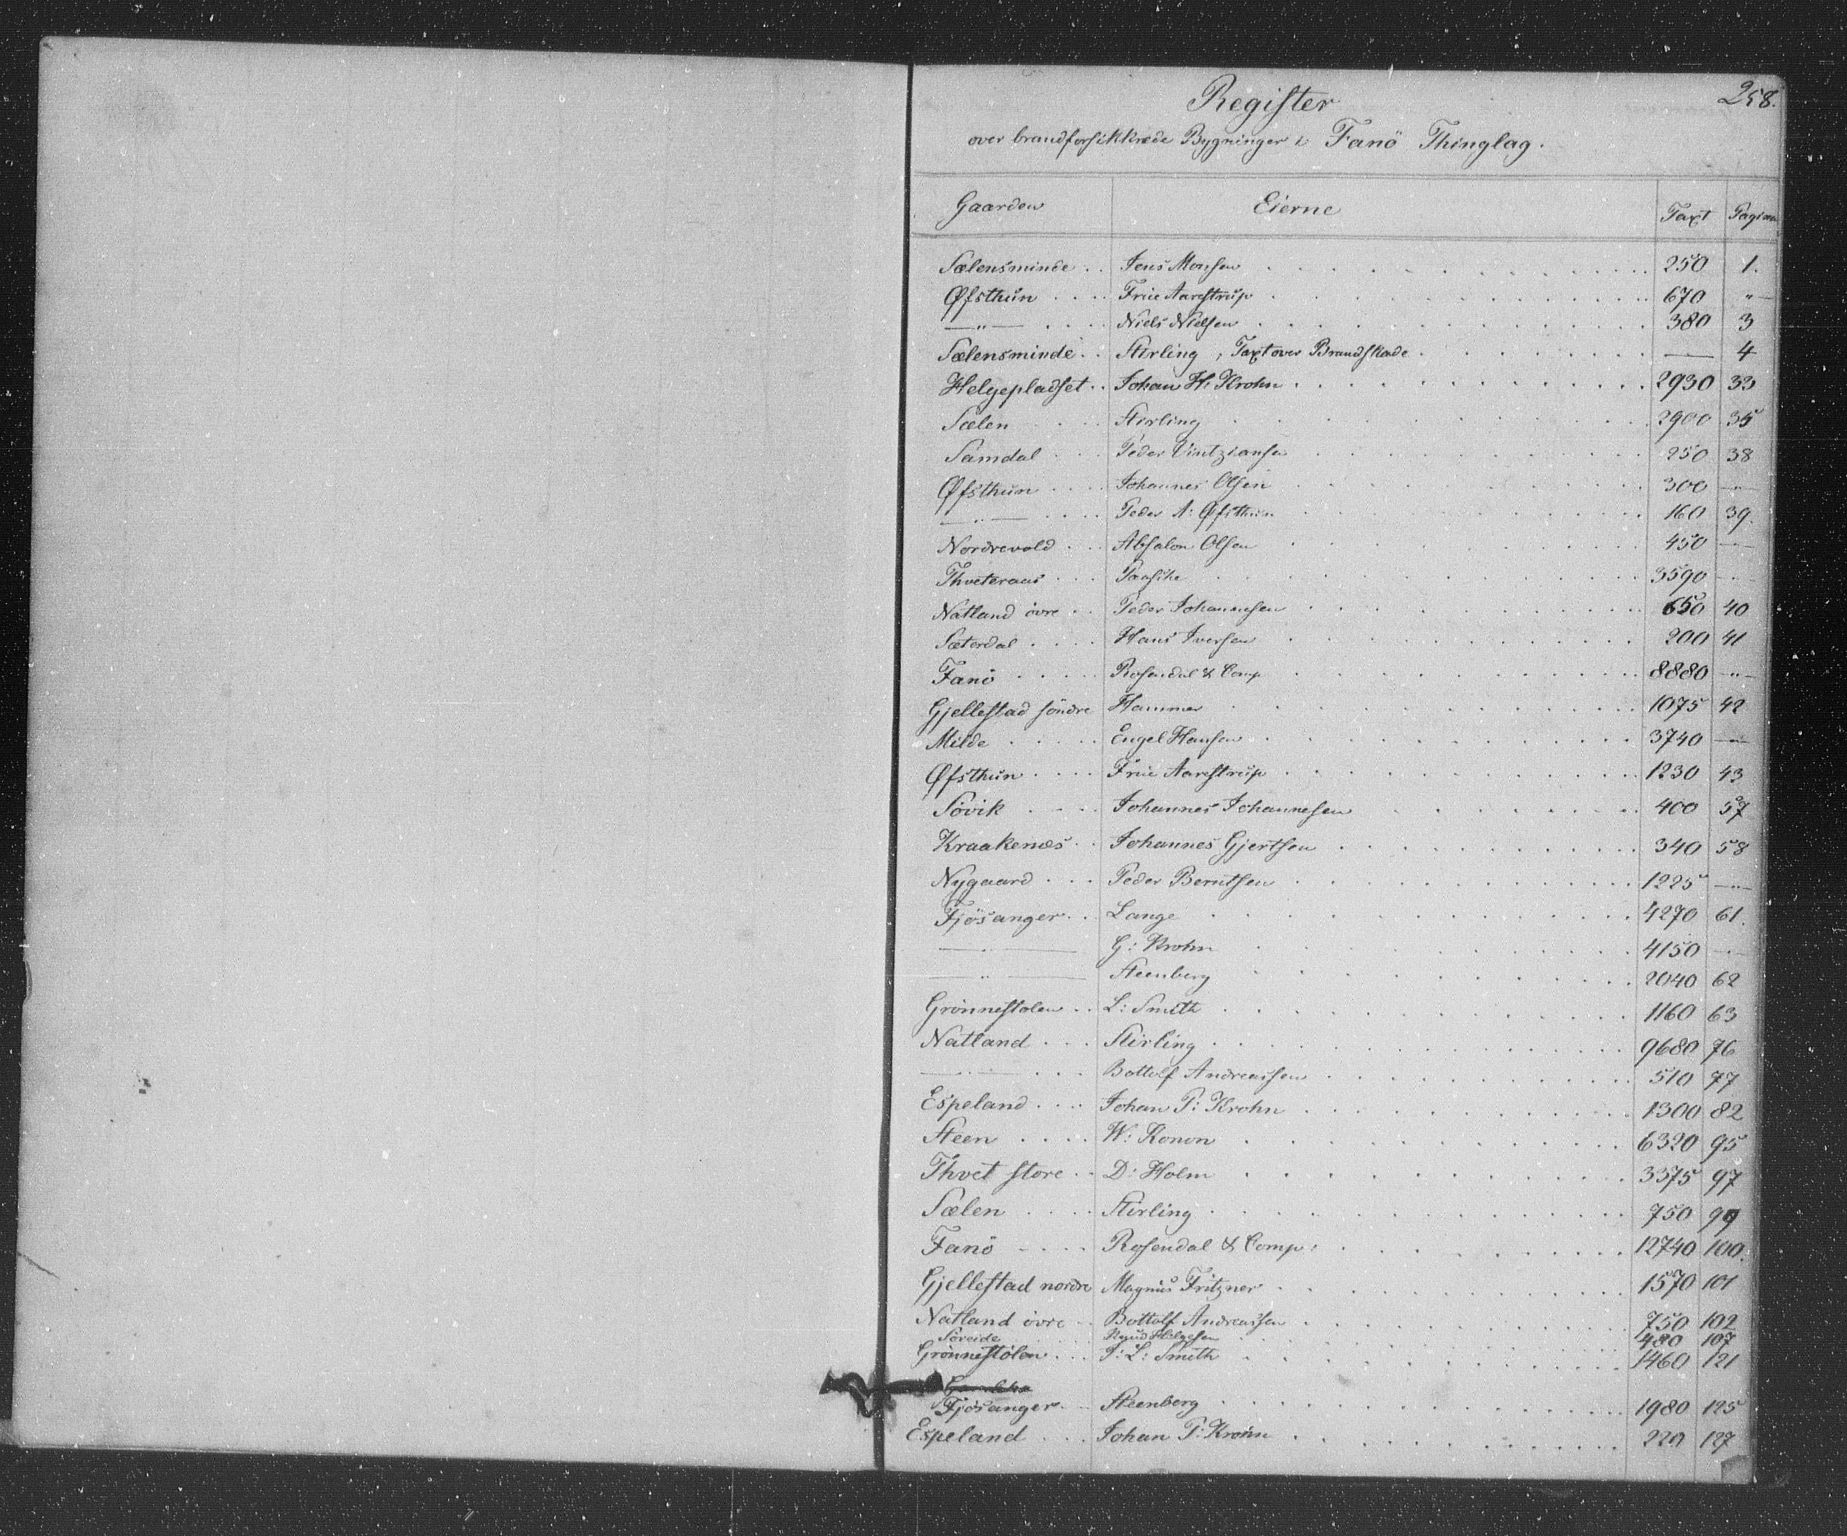 258.
Register
over brandforsikkrede Bygninger i Fanö Thinglag.
Gaarden Eierne Taxt Pagina
Sælensminde . . Jens Monsen 250 1.
Øfsthün . . . . Frue Aarestrüp 670 "
—"— . . . . Niels Nielsen 380 3
Sælensminde . . Stirling, Taxt over Brandskade — 4
Helgepladset . . Johan H: Krohn 2930 33
Sælen . . . . Stirling 2900 35
Samdal . . . Peder 250 38
Øfsthün . . . . Johannes Olsen 300 —"—
—"— . . . . Peder A: Øfsthün 160 39.
Nordrevold . . . Absalon Olsen 450 —"—
Thveteraas . . . Paasche 3590 —"—
Natland övre . . Peder Johannesen 650 40
Sæterdal . . . . Hans Iversen 200 41
Fanö . . . . . Rosendal & Comp 8880 —"—
Gjellestad söndre Hammer 1075 42
Milde . . . . . Engel Hansen 3740 —"—
Øfsthün . . . . Frue Aarestrüp 1230 43
Sövik . . . . Johannes Johannesen 400 57
Kraakenæs . . Johannes Gjertsen 340 58
Nygaard . . . Peder Berntsen 1225 —"—
Fjösanger . . Lange 4270 61.
—"— G: Krohn 4150 —"—
—"— Steenberg 2040 62
Grönnestølen . . L: Smith 1160 63
Natland . . . Stirling 9680 76
—"— . . . Bottolf Andreassen 510 77
Espeland . . . . Johan P: Krohn 1300 82
Steen . . . . W: Konow 6320 95
Thvet store . . D: Holm 3375 97
Sælen . . . . Stirling 750 99
Fanö . . . . Rosendal & Comp: 12740 100.
Gjellestad nordre Magnus Fritzner 1570 101
Natland övre . . Bottolf Andreassen 750 102
Söreide Knud Helgesen 480 107
Grönnestølen . . . J: L: Smith 1460 121
Fjösanger . . Steenberg 1980 125
Espeland . . . Johan P: Krohn 220 127